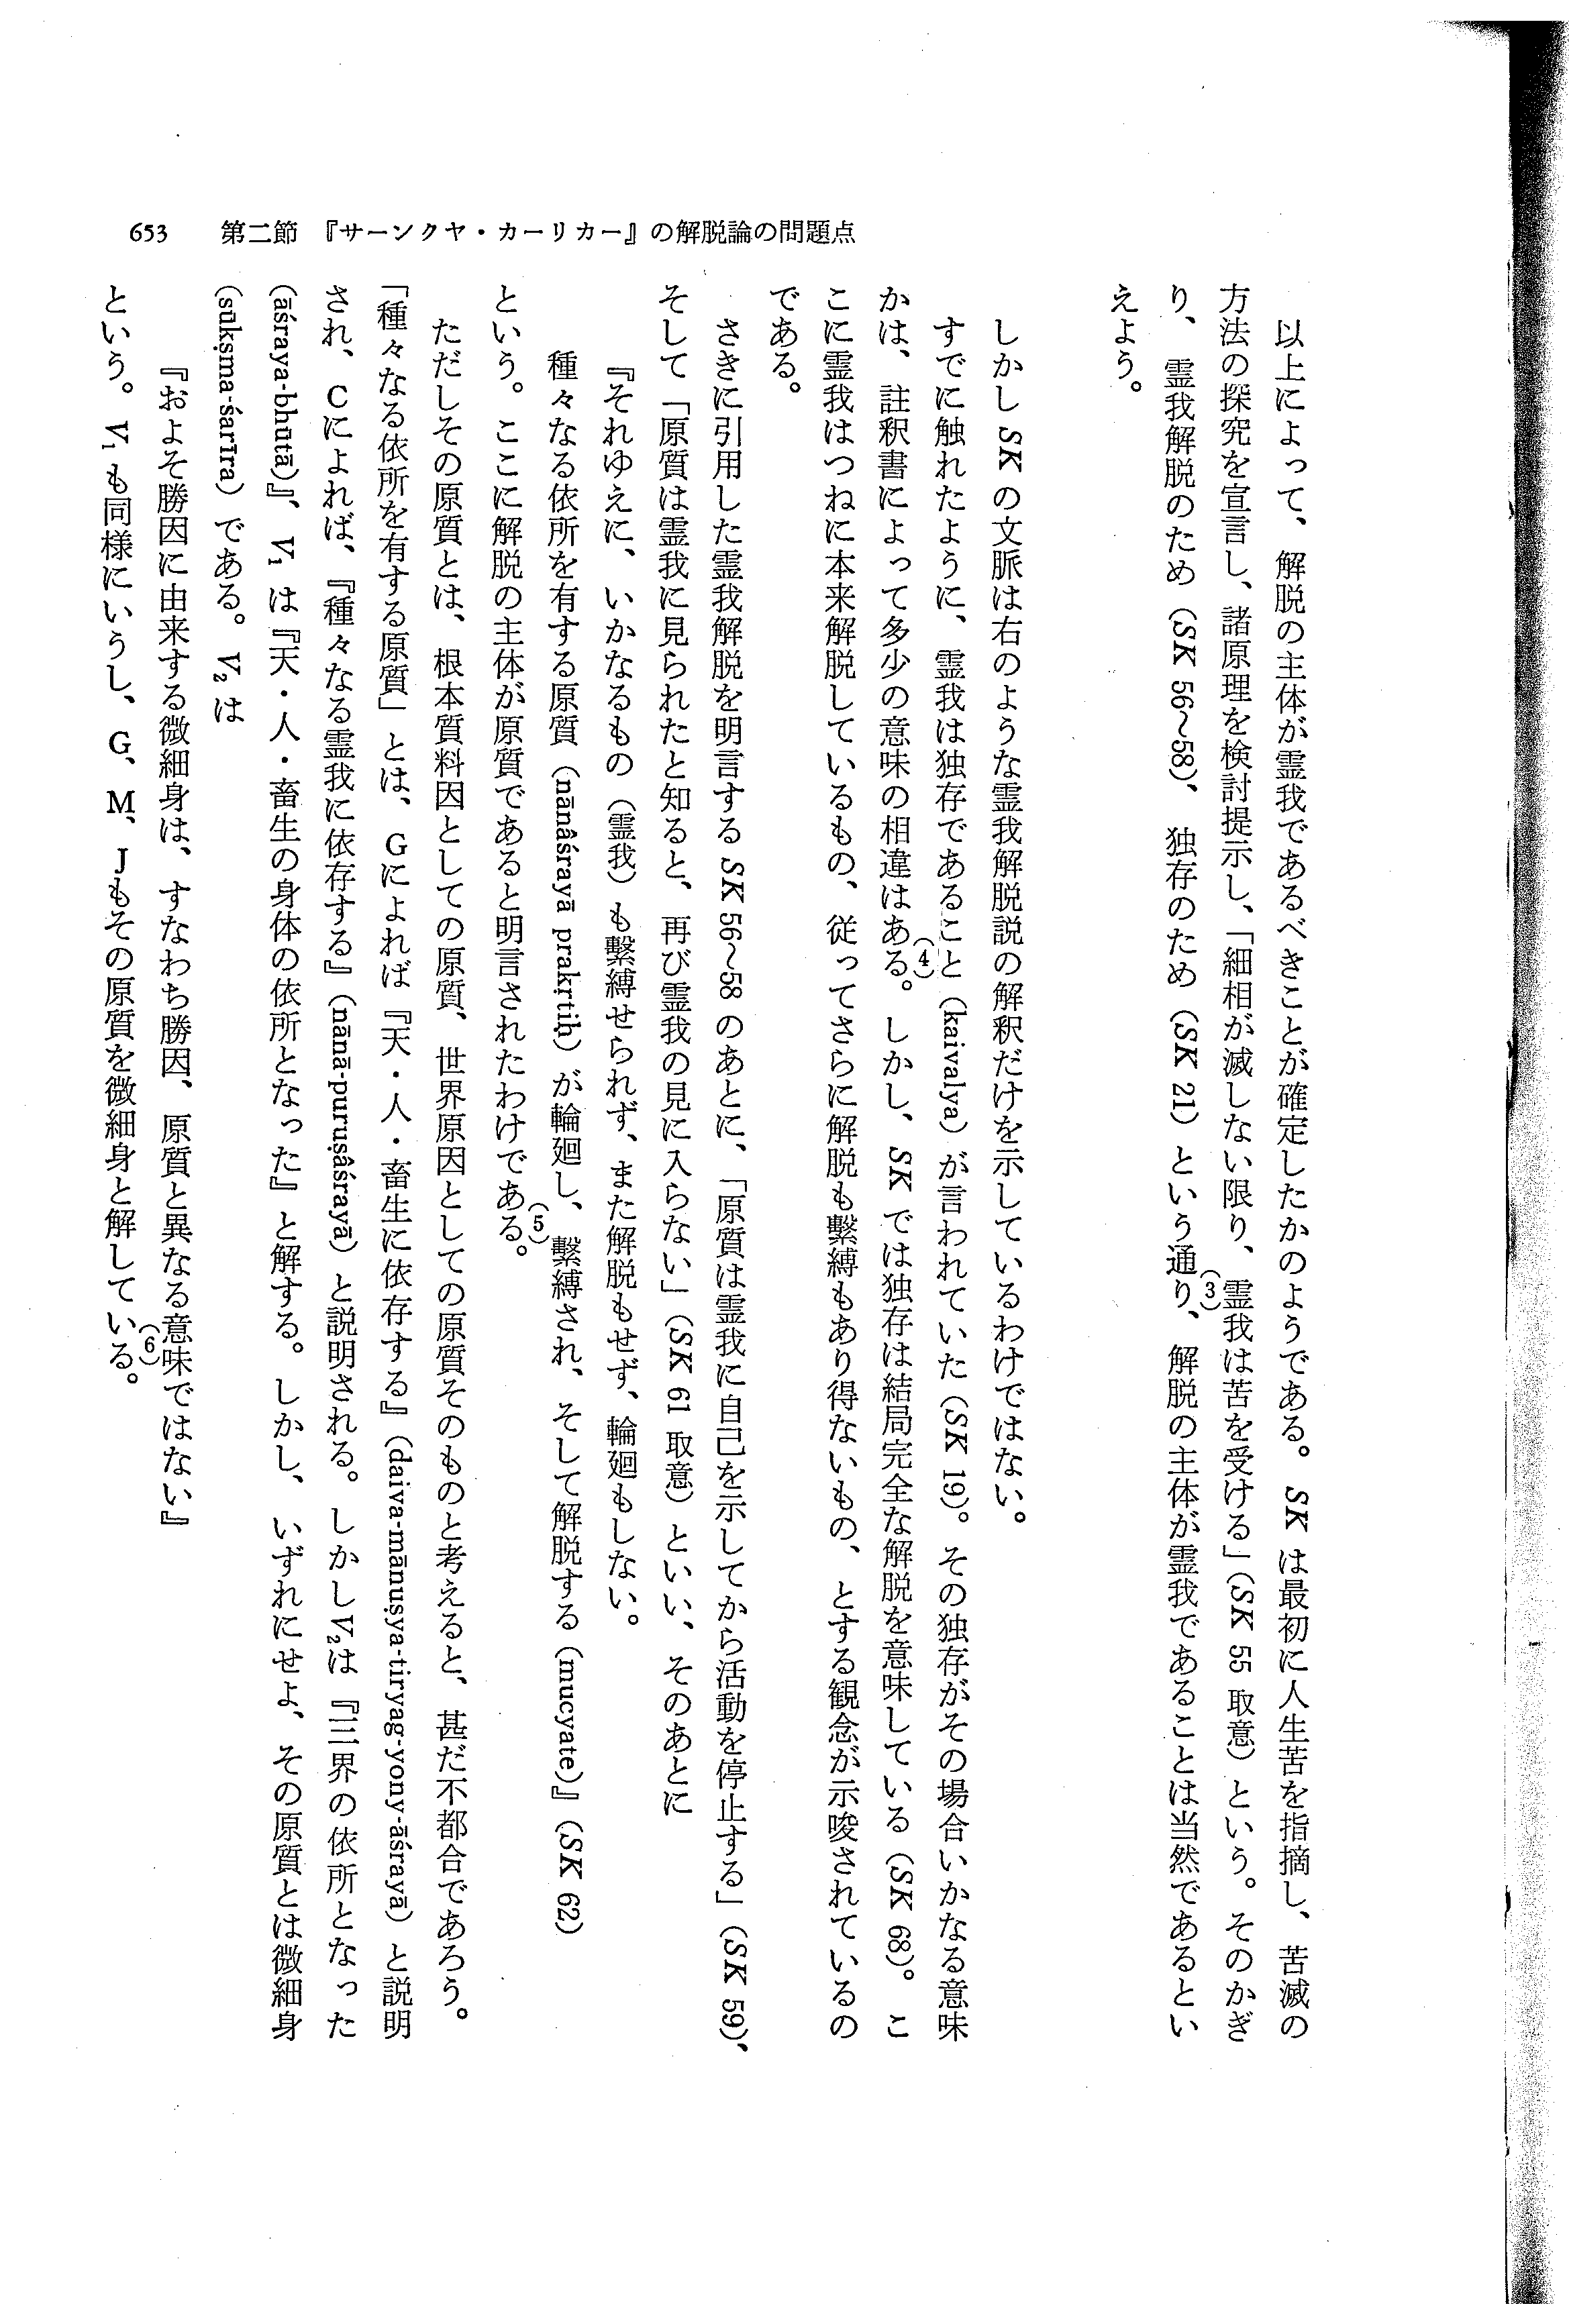 653　第二節　『サーンクヤ・カーリカー』の解脱論の問題点
　以上によって、解脱の主体が霊我であるべきことが確定したかのようである。SK は最初に人生苦を指摘し、苦滅の
方法の探究を宣言し、諸原理を検討提示し、「細相が滅しない限り、霊我は苦を受ける」(SK 55 取意)という。そのかぎ
り、霊我解脱のため(SK 56〜58)、独存のため(SK 21)という通り(3)、解脱の主体が霊我であることは当然であるとい
えよう。
　しかし SK の文脈は右のような霊我解脱説の解釈だけを示しているわけではない。
　すでに触れたように、霊我は独存であること(kaivalya)が言われていた(SK 19)。その独存がその場合いかなる意味
かは、註釈書によって多少の意味の相違はある(4)。しかし、SK では独存は結局完全な解脱を意味している(SK 68)。こ
こに霊我はつねに本来解脱しているもの、従ってさらに解脱も繫縛もあり得ないもの、とする観念が示唆されているの
である。
　さきに引用した霊我解脱を明言する SK 56〜58 のあとに、「原質は霊我に自己を示してから活動を停止する」(SK 59)、
そして「原質は霊我に見られたと知ると、再び霊我の見に入らない」(SK 61 取意)といい、そのあとに
　　『それゆえに、いかなるもの(霊我)も繫縛せられず、また解脱もせず、輪廻もしない。
　　種々なる依所を有する原質(nānâśrayā prakṛtiḥ)が輪廻し、繫縛され、そして解脱する(mucyate)』(SK 62)
という。ここに解脱の主体が原質であると明言されたわけである(5)。
　ただしその原質とは、根本質料因としての原質、世界原因としての原質そのものと考えると、甚だ不都合であろう。
「種々なる依所を有する原質」とは、Gによれば『天・人・畜生に依存する』(daiva-mānuṣya-tiryag-yony-āśrayā)と説明
され、Cによれば、『種々なる霊我に依存する』(nānā-puruṣâśrayā)と説明される。しかしV₂は『三界の依所となった
(āśraya-bhūtā)』、V₁ は『天・人・畜生の身体の依所となった』と解する。しかし、いずれにせよ、その原質とは微細身
(sūkṣma-śarīra)である。V₂ は
　　『およそ勝因に由来する微細身は、すなわち勝因、原質と異なる意味ではない』
という。V₁ も同様にいうし、G、M、Jもその原質を微細身と解している(6)。